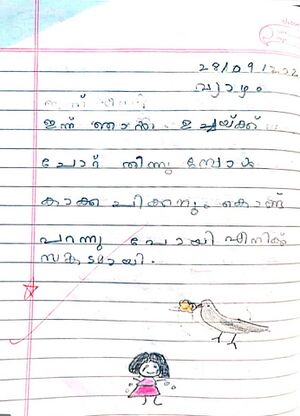 28/09/2022
വ്യാഴം
ഇന്ന് ഞാൻ ഉച്ചയ്ക്ക്
ചോറ് തിന്നു മ്പോൾ
കാക്ക ചിക്കനും കൊണ്ട്
പറന്നു പോയി എനിക്ക്
സങ്കടമായി.